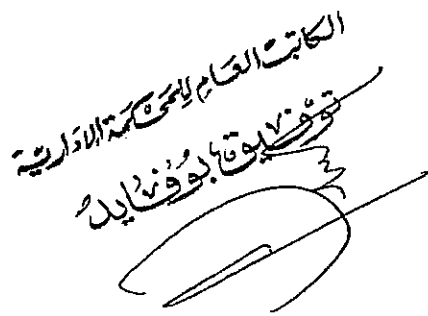 الكاتب العام للمحكمة الادارية
توفيق بوفايد